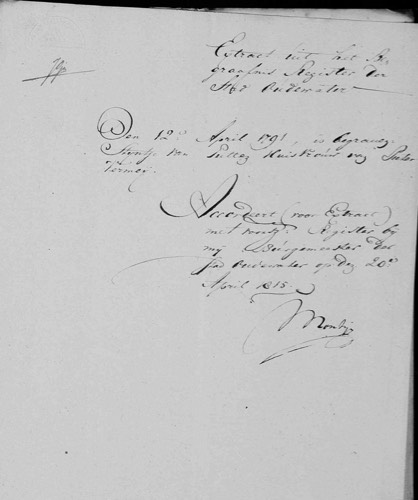 Extract uit het Be
graafnis Register der
Stad Oudewater
Den 12e April 1791, is begraven
van Putten Huisvrouw van Pieter
Vermeij.
Accordeert (voor Extract)
met voorsz. Register bij
mij Burgemeester der
stad Oudewater op den 20e
April 1815.